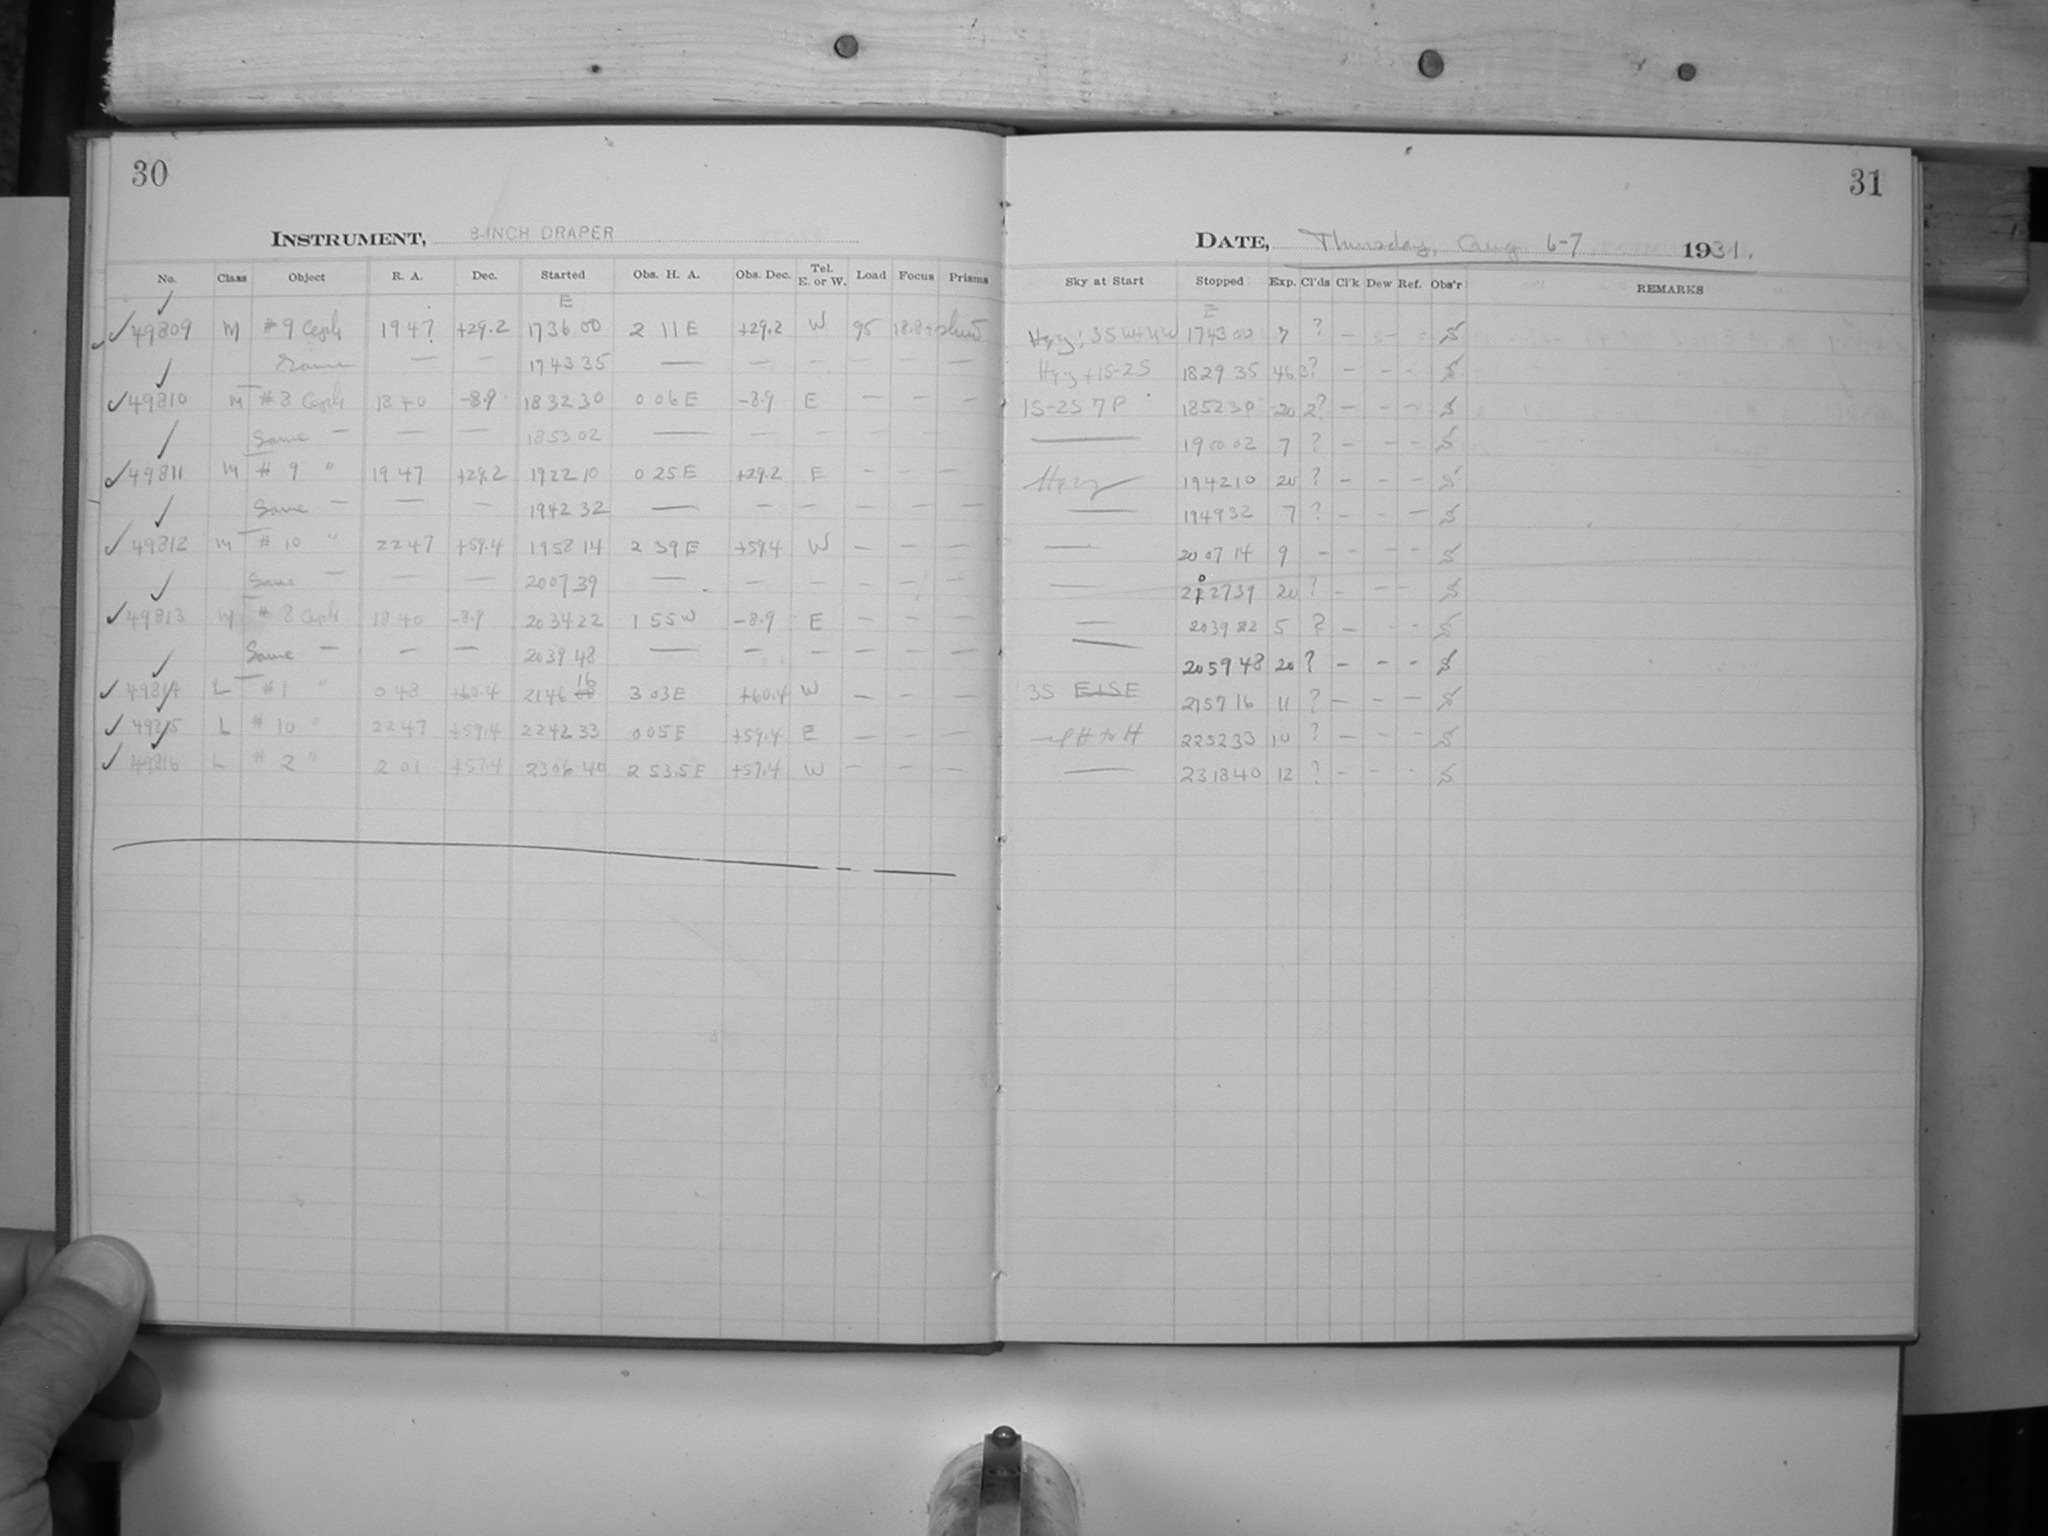 30
INSTRUMENT, 8-INCH DRAPER
No. Class Object R. A. Dec. Started Obs. H. A. Obs. Dec. Tel. E. or W. Load Focus Prisms
E
49809 M # 9 Ceph 19 47 +29.2 17 36 00 2 11 E +29.2 W 95
Same — — 17 43 35 — — — — — —
49810 M # 8 Ceph 18 40 -8.9 18 32 30 0 06 E -8.9 E — — —
Same — — — 18 53 02 — — — — —
49811 M # 9 " 19 47 +29.2 19 22 10 0 25 E +29.2 E — — —
Same — — — 19 42 32 — — — — — —
49812 M # 10 " 22 47 +59.4 19 58 14 2 39 E +59.4 W — — —
Same — — — 20 07 39 — — — — — —
49813 M # 8 Ceph 18 40 -8.9 20 34 22 1 55 W -8.9 E — — —
Same — — — 20 39 48 — — — — — —
49814 L # 1 " 0 48 +60.4 21 46 16 3 03 E +60.4 W — — —
49815 L # 10 " 22 47 +59.4 22 42 33 0 05 E +59.4 E — — —
49816 L # 2 " 2 01 +57.4 23 06 40 2 53.5 E +57.4 W — — —
31
DATE, Thursday, Aug 6-7 1931.
Sky at Start Stopped Exp. Cl'ds Cl'k Dew Ref. Obs'r REMARKS
E
Hazy; 3S 17 43 00 7 ? — — — S
Hazy + 1S-2S 18 29 35 46 ? — — — S
1S-2S 7P 18 52 30 20 2? — — — S
— 19 00 02 7 ? — — — S
Hazy 19 42 10 20 ? — — — S
— 19 49 32 7 ? — — — S
— 20 07 14 9 — — — — S
— 20 27 39 20 ? — — — S
— 20 39 22 5 ? — — — S
— 20 59 48 20 ? — — — S
3S E1SE 21 57 16 11 ? — — — S
H to H 22 52 33 10 ? — — — S
— 23 18 40 12 ? — — — S